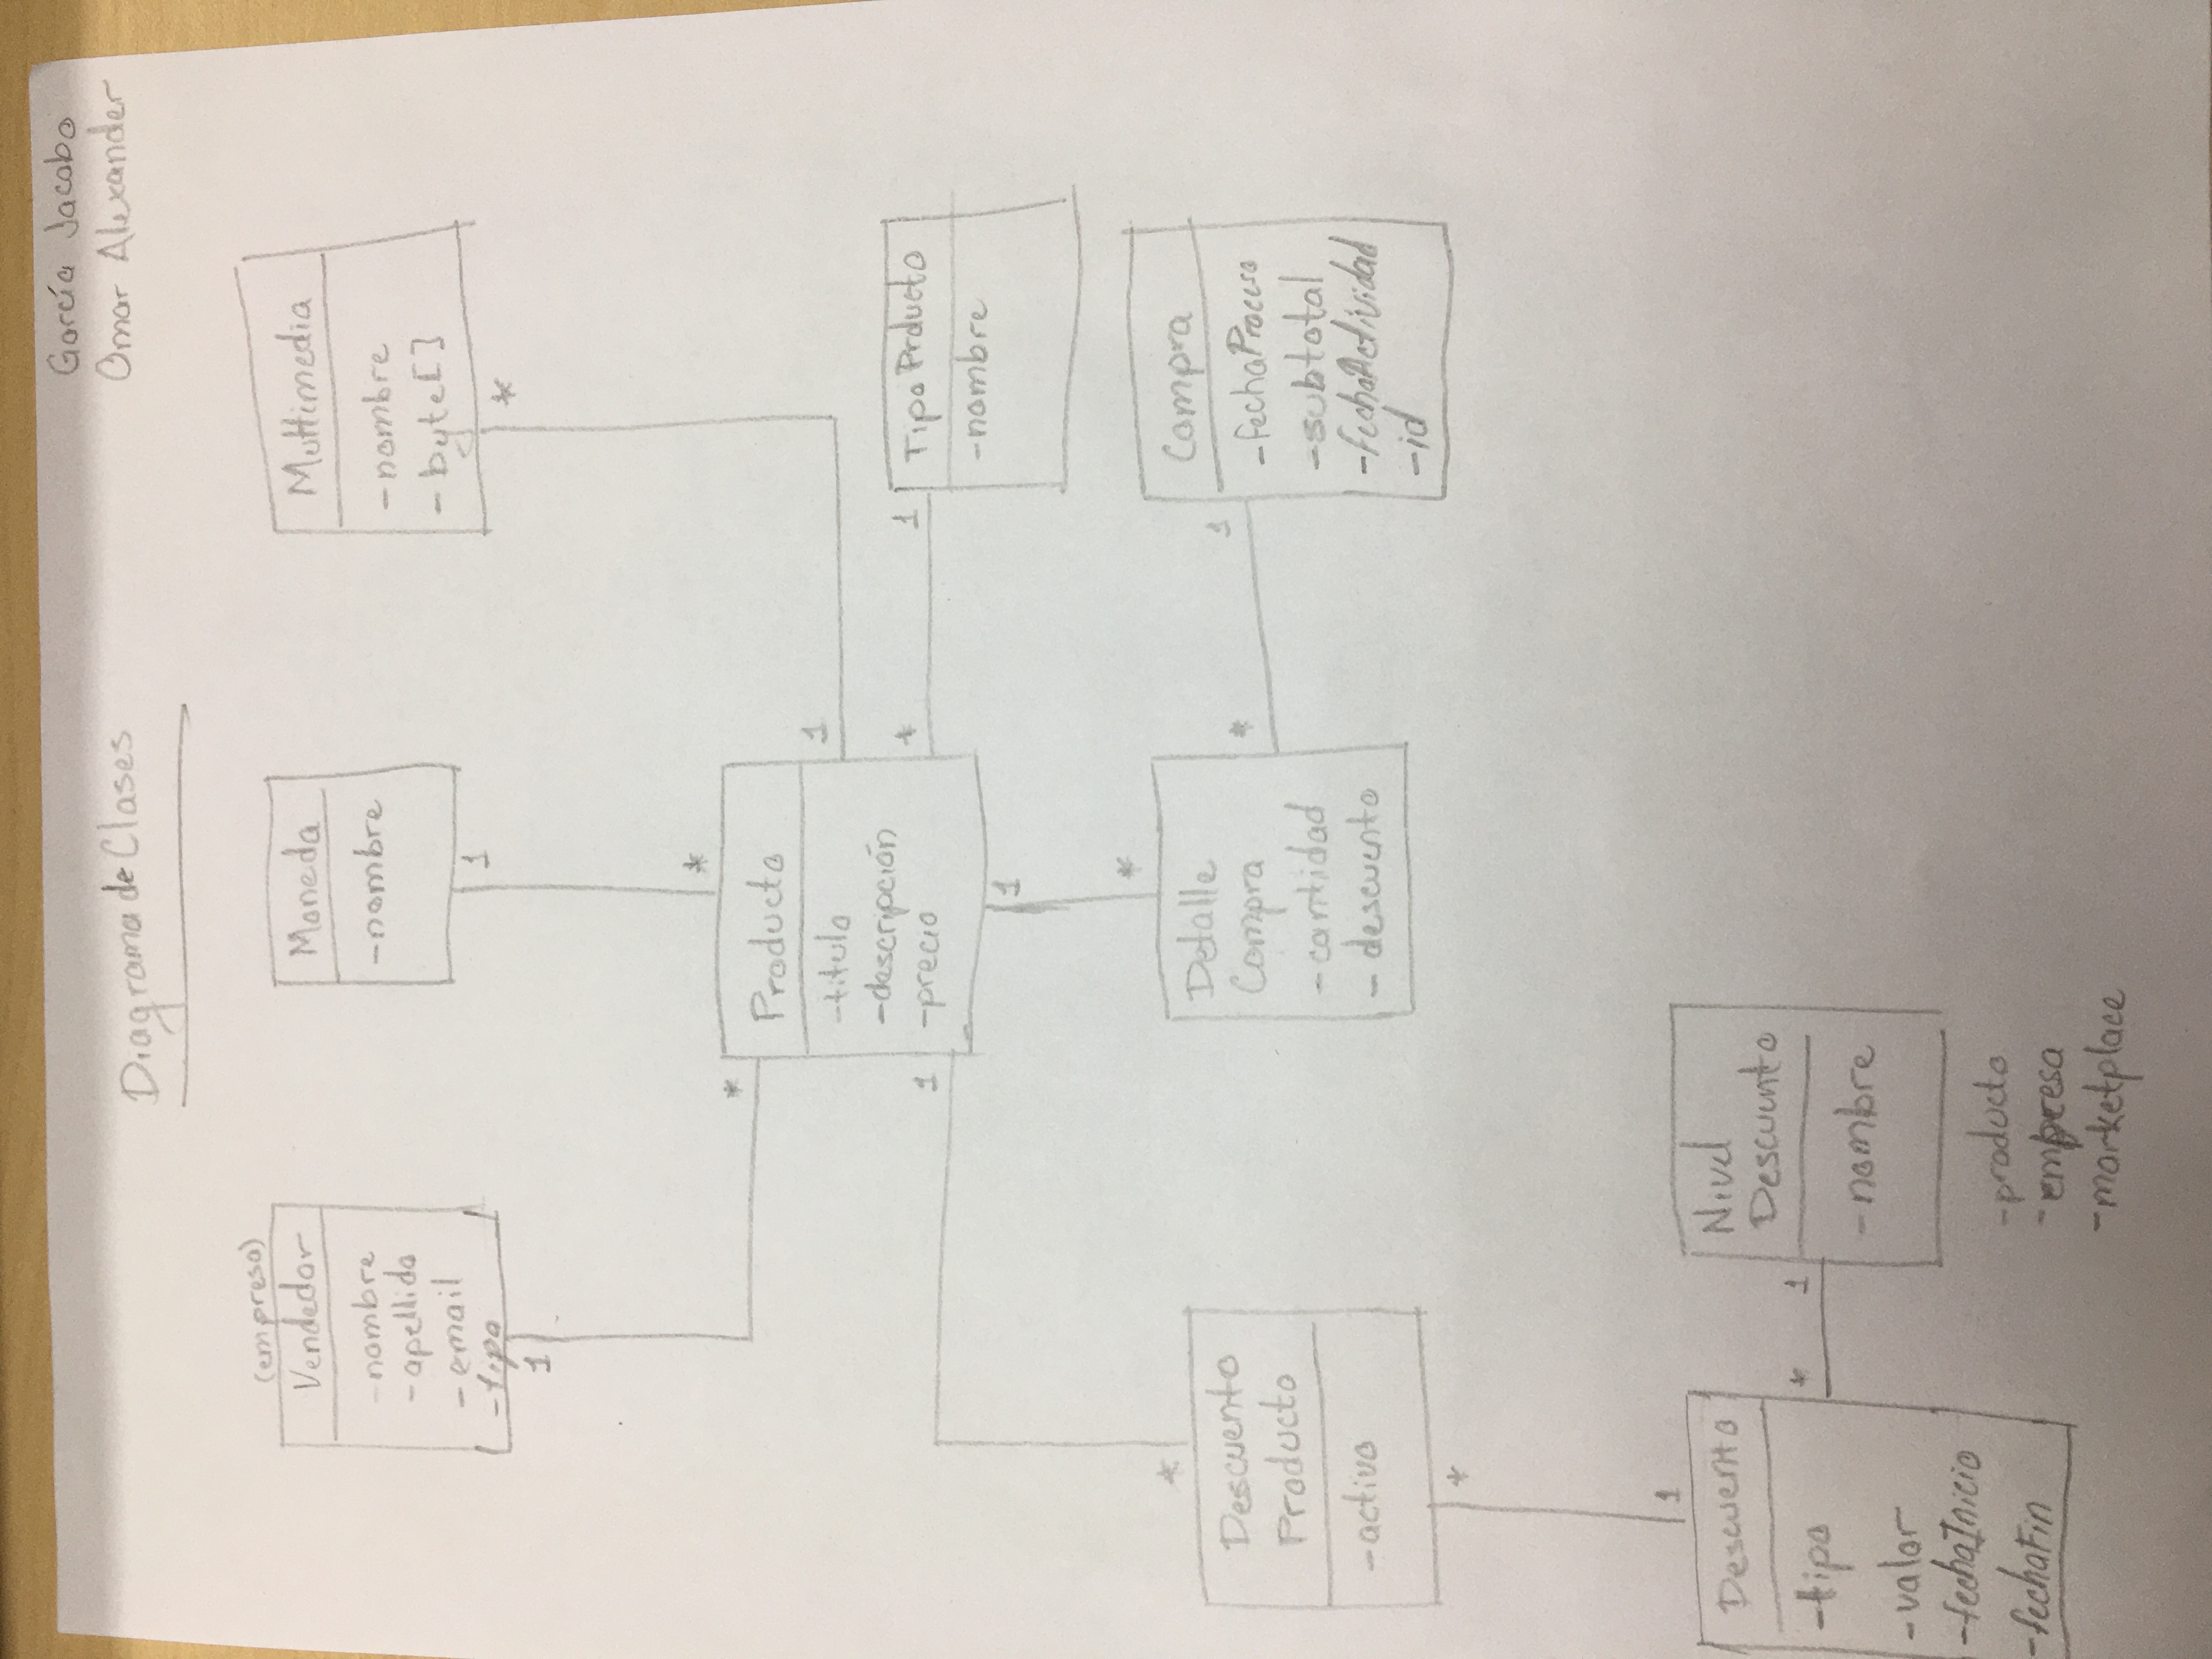 García Jacobo
Omar Alexander
Diagrama de Clases
(empresa)
Vendedor
-nombre
-apellido
-email
-tipo
1
*
Moneda
-nombre
1
*
Multimedia
-nombre
-byte[]
*
1
Producto
-titulo
-descripción
-precio
*
1
Tipo Prducto
-nombre
1
*
1
*
Descuento
Producto
-activo
*
1
Detalle
Compra
-cantidad
-descuento
*
1
Compra
-fechaProceso
-subtotal
-fechaActividad
-id
Descuento
-tipo
-valor
-fechaInicio
-fechaFin
*
1
Nivel
Descuento
-nombre
-producto
-empresa
-marketplace